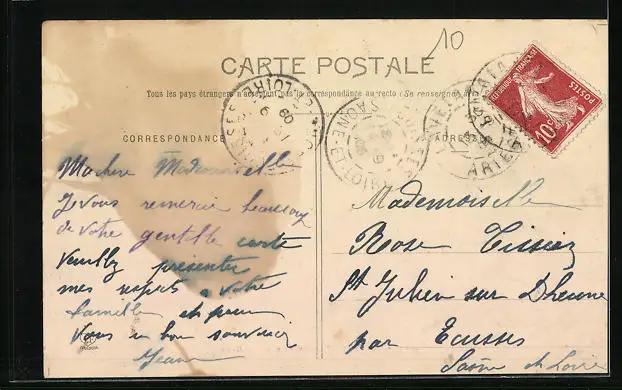 10
CARTE POSTALE
Tous les pays étrangers n'acceptent pas la correspondance au recto (Se renseigner à
CORRESPONDANCE
ADRESSE
Ma chère Mademoiselle
Je vous remercie beaucoup
de votre gentille carte
Veuillez présenter
mes respects a votre
famille et pour
Vous un bon souvenir
Jeanne
POSTES
10c
SAONE-ET-LOIRE
Mademoiselle
Rose Tissier
St Julien sur Dheune
par Ecuisses
Saône et Loire